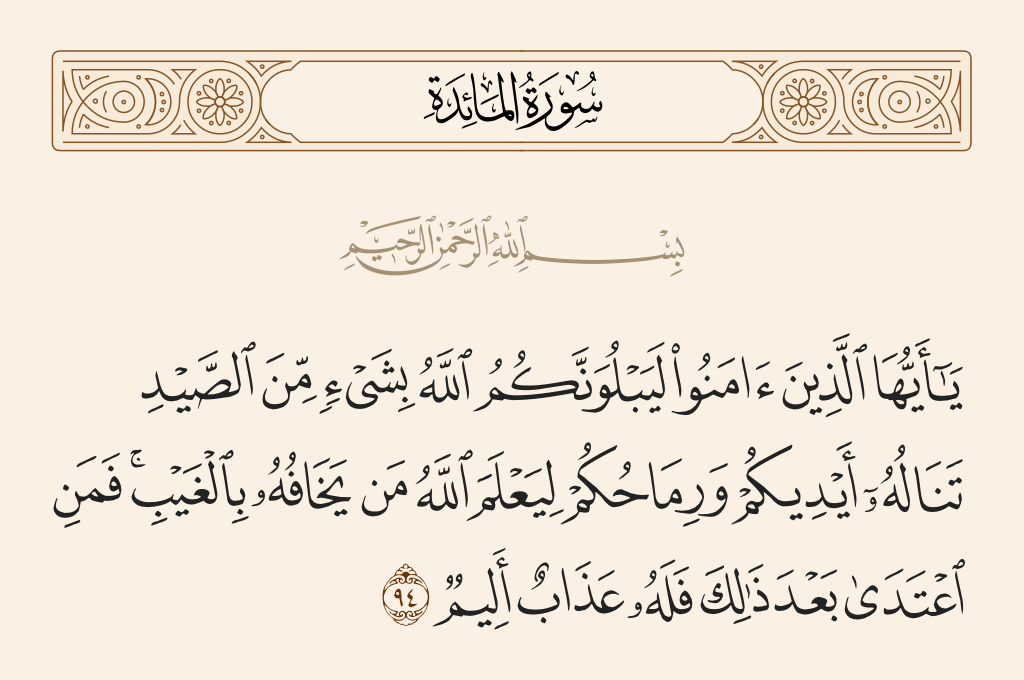 سُورَةُ المَائِدَةِ
بِسْمِ ٱللَّهِ ٱلرَّحْمَٰنِ ٱلرَّحِيمِ
يَـٰٓأَيُّهَا ٱلَّذِينَ ءَامَنُوا۟ لَيَبْلُوَنَّكُمُ ٱللَّهُ بِشَىْءٍ مِّنَ ٱلصَّيْدِ
تَنَالُهُۥٓ أَيْدِيكُمْ وَرِمَاحُكُمْ لِيَعْلَمَ ٱللَّهُ مَن يَخَافُهُۥ بِٱلْغَيْبِ ۚ فَمَنِ
ٱعْتَدَىٰ بَعْدَ ذَٰلِكَ فَلَهُۥ عَذَابٌ أَلِيمٌ ٩٤